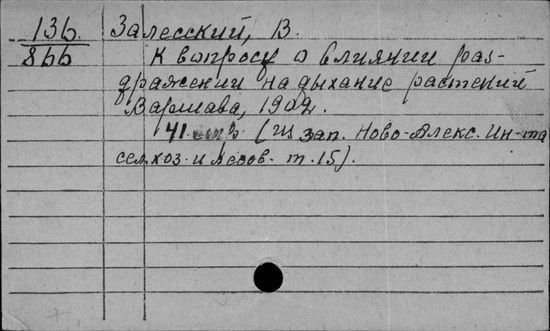 136. Залесский, В.
866 К вопросу о влиянии раз-
дражений на дыхание растений
Варшава, 1902.
41 стр (из зап. Ново-Алекс. Ин-та
сел. хоз. и лесов. т. 15).